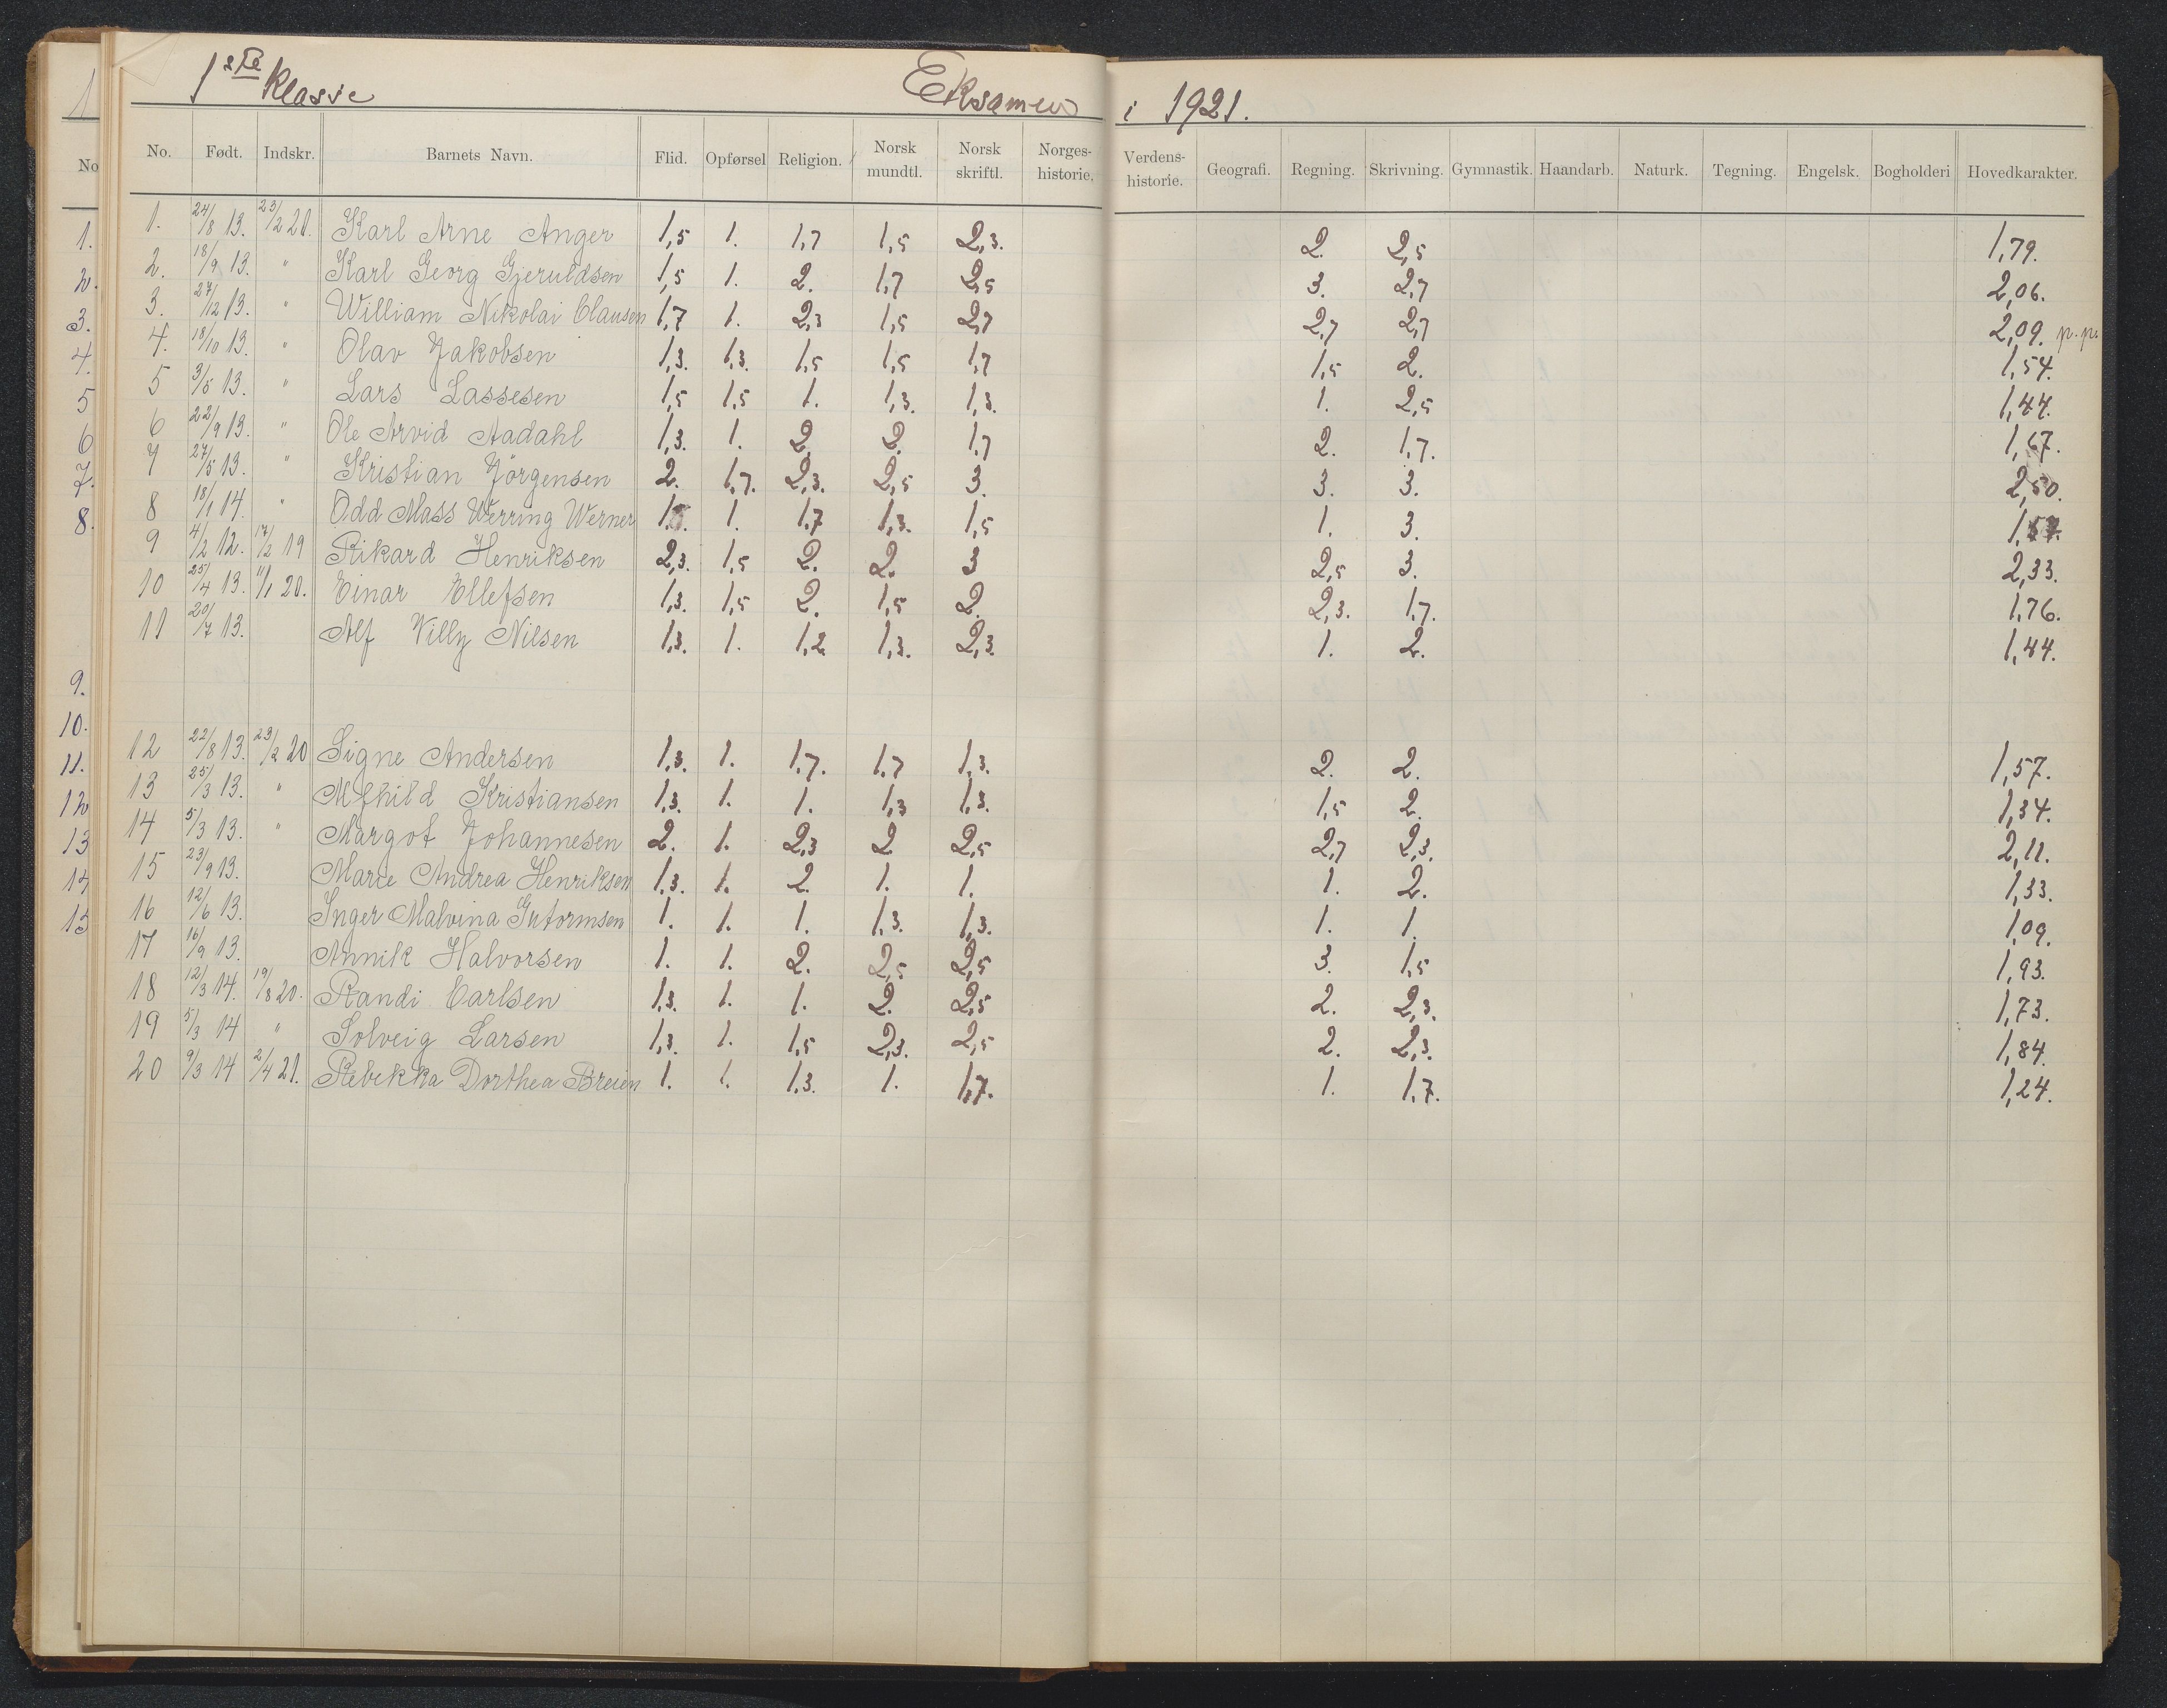 1ste Klasse Eksamen i 1921.
No. Født. Indskr. Barnets Navn. Flid. Opførsel Religion. Norsk mundtl. Norsk skriftl. Norges-historie. Verdens-historie. Geografi. Regning. Skrivning. Gymnastik. Haandarb. Naturk. Tegning. Engelsk. Bogholderi Hovedkarakter.
1. 24/8 13. 23/2 20. Karl Arne Anger 1,5 1. 1,7 1,5 2,3. 2. 2,5 1,79.
2. 18/9 13. " Karl Georg Gjeruldsen 1,5 1. 2. 1,7 2,5 3. 2,7 2,06.
3. 27/12 13. " William Nikolai Clausen 1,7 1. 2,3 1,5 2,7 2,7 2,7 2,09. p.p.
4. 18/10 13. " Olav Jakobsen 1,3. 1,3. 1,5 1,5 1,7 1,5 2. 1,54.
5 3/5 13. " Lars Lassesen 1,5 1,5 1. 1,3. 1,3. 1. 2,5 1,44.
6 22/9 13. " Ole Arvid Aadahl 1,3. 1. 2. 2. 1,7 2. 1,7. 1,67.
7 27/5 13. " Kristian Jörgensen 2. 1,7. 2,3. 2,5 3. 3. 3. 2,50.
8 18/1 14. " Odd Mass Werring Werner 1,5. 1. 1,7 1,3. 1,5 1. 3.
9 4/2 12. 17/2 19 Rikard Henriksen 2,3. 1,5 2. 2. 3 2,5 3. 2,33.
10 25/4 13. 11/1 20. Einar Ellefsen 1,3. 1,5 2. 1,5 2. 2,3. 1,7. 1,76.
11 20/7 13. Alf Villy Nilsen 1,3. 1. 1,2 1,3. 2,3. 1. 2. 1,44.
12 22/8 13. 23/2 20 Signe Andersen 1,3. 1. 1,7. 1,7 1,3. 2. 2. 1,57.
13 25/3 13. " Alfhild Kristiansen 1,3. 1. 1. 1,3 1,3. 1,5 2. 1,34.
14 5/3 13. " Margot Johannesen 2. 1. 2,3 2 2,5 2,7 2,3. 2,11.
15 23/9 13. Marie Andrea Henriksen 1,3. 1. 2. 1. 1. 1. 2. 1,33.
16 12/6 13. Inger Malvina Gutormsen 1. 1. 1. 1,3. 1,3. 1. 1. 1,09.
17 16/9 13. Annik Halvorsen 1. 1. 2. 2,5 2,5 3. 1,5 1,93.
18 12/3 14. 19/8 20. Randi Carlsen 1,3. 1. 1. 2. 2,5 2. 2,3. 1,73.
19 5/3 14 " Solveig Larsen 1,3. 1. 1,5 2,3. 2,5 2. 2,3. 1,84.
20 9/3 14 2/4 21. Rebekka Dorthea Breien 1. 1. 1,3. 1. 1,7. 1. 1,7. 1,24.
1
No
1.
2.
3.
4.
5
6
7.
8.
9.
10.
11.
12
13
14
15